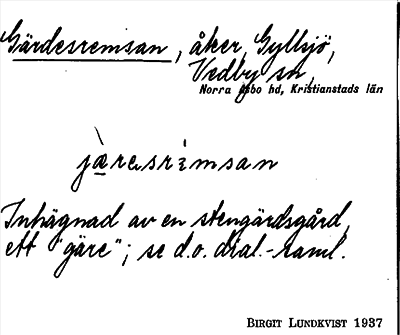 Gärdesremsan, åker, Gyllsjö,
Vedby sn,
Norra Åsbo hd, Kristianstads län
jàresrìmsan
Inhägnad av en stengärdsgård,
ett "gäre"; se d.o. dial.-saml.
BIRGIT LUNDKVIST 1937